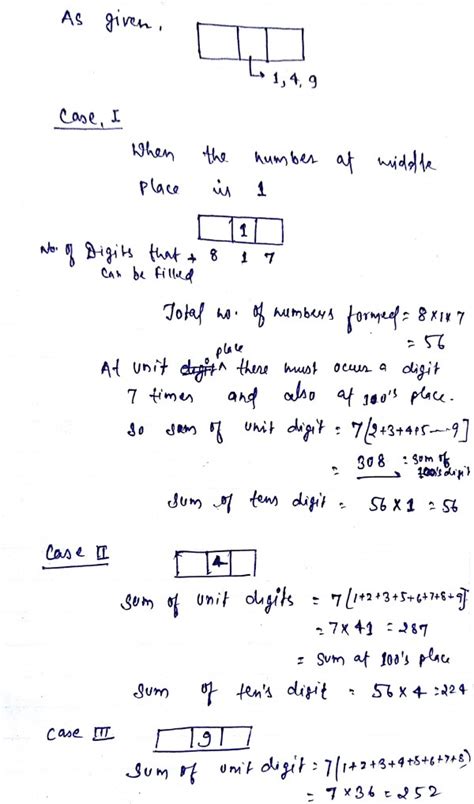 As given,
1, 4, 9
Case, I
When the number at middle
place is 1
1
No. of Digits that → 8 1 7
can be filled
Total no. of numbers formed = 8×1×7
= 56
At unit place there must occur a digit
7 times and also at 100's place.
So sum of unit digit = 7[2+3+4+5---9]
= 308 = Sum of
100's digit
Sum of tens digit = 56×1 = 56
Case II
4
Sum of unit digits = 7[1+2+3+5+6+7+8+9]
= 7×41 = 287
= Sum at 100's place
Sum of ten's digit = 56×4 = 224
Case III
9
Sum of unit digit = 7(1+2+3+4+5+6+7+8)
= 7×36 = 252